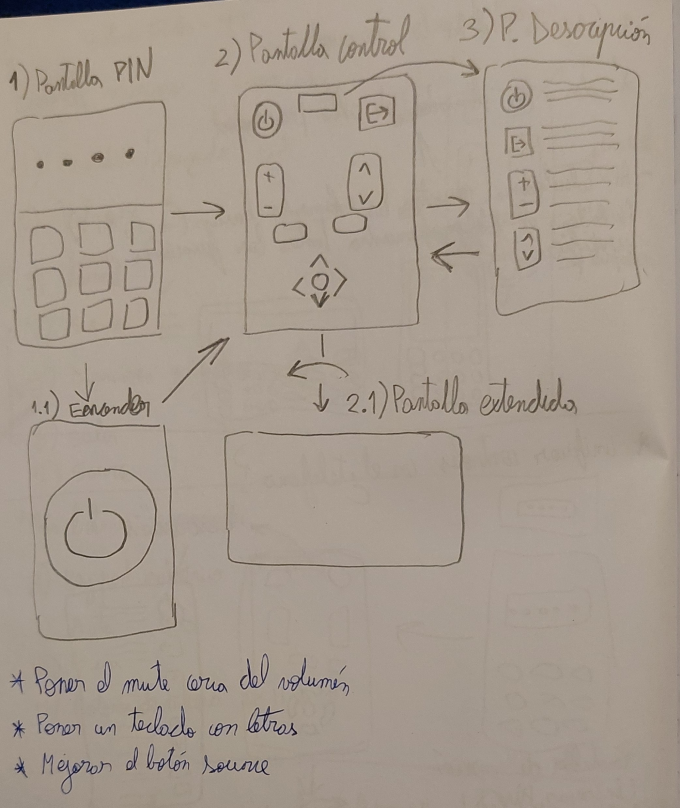 1) Pantalla PIN
2) Pantalla control
3) P. Descripción
1.1) Encender
2.1) Pantalla extendida
* Poner el mute cerca del volumén
* Poner un teclado con letras
* Mejorar el botón source